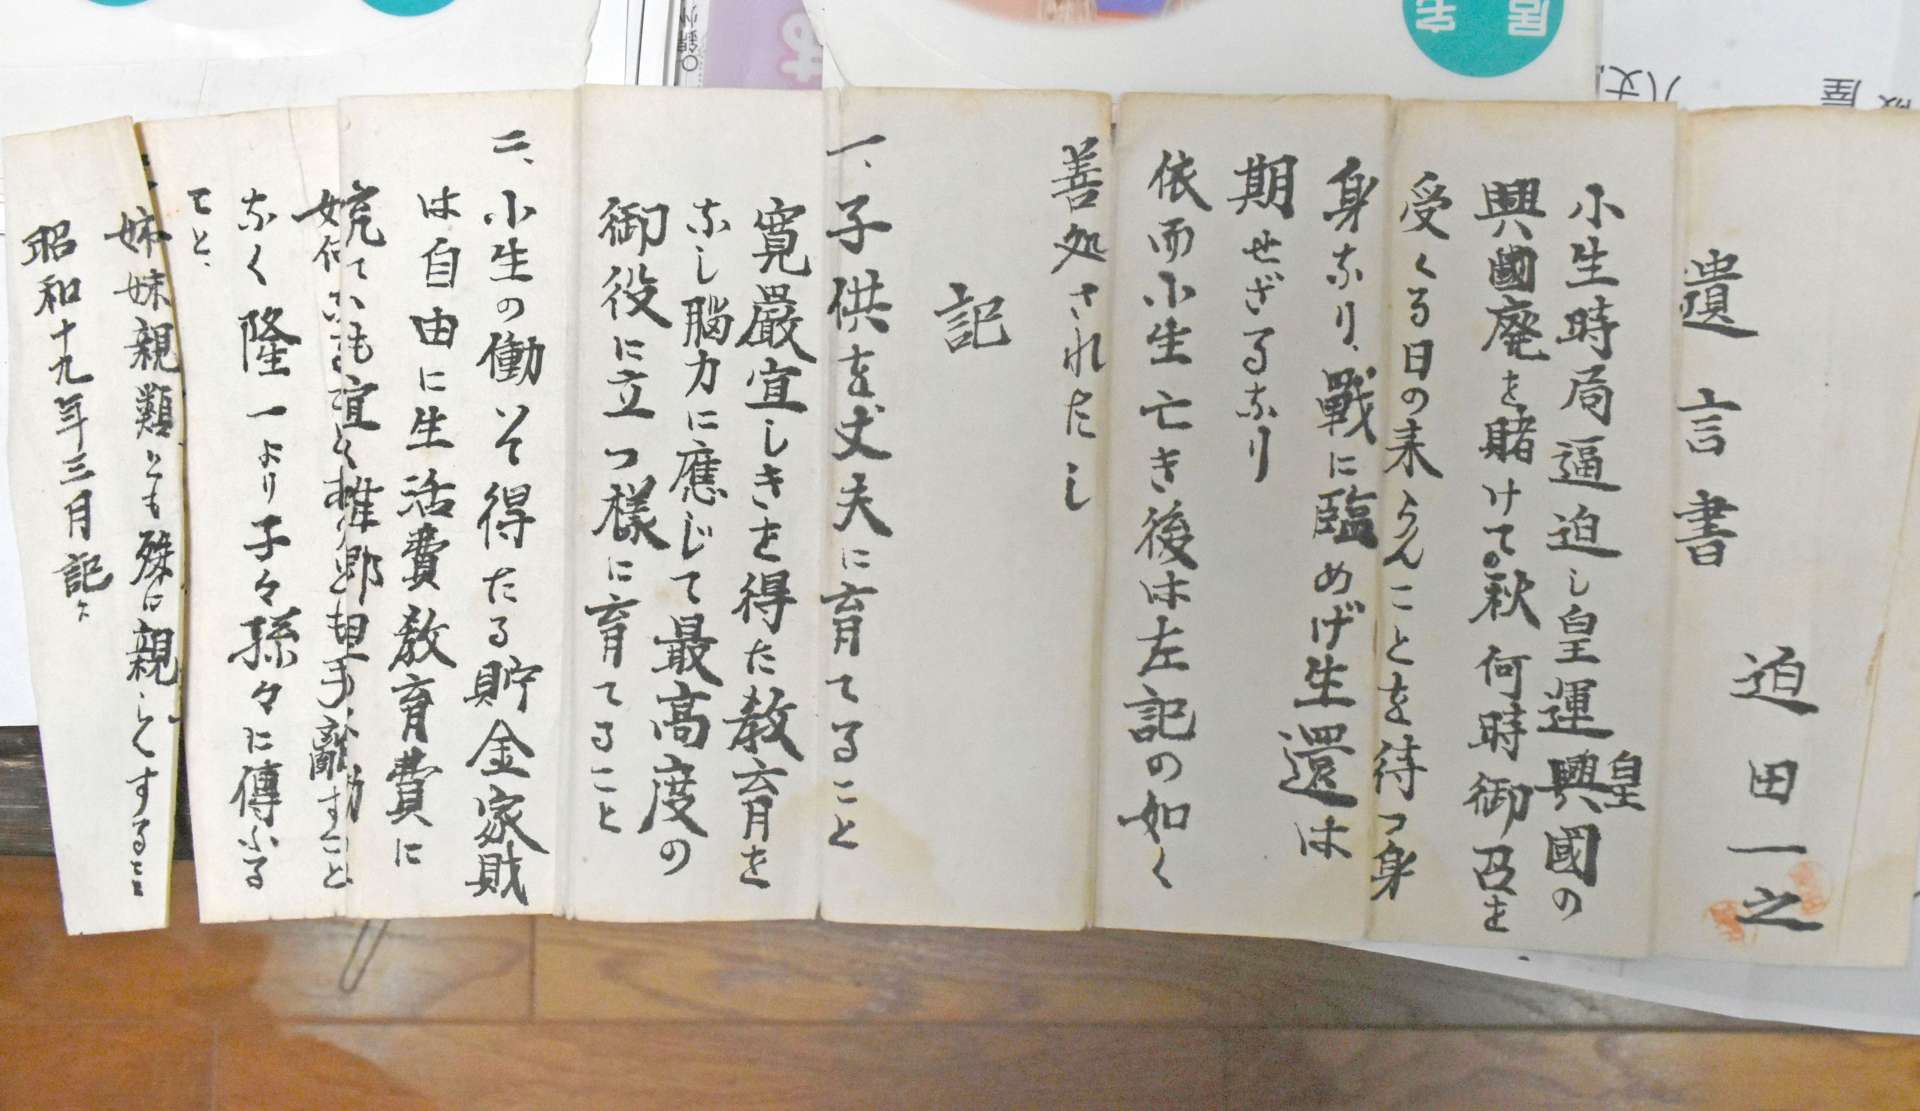 遺言書
迫田一之
小生時局逼迫し皇運興國の
皇
興國廃を賭けて秋何時御召を
受くる日の来らんことを待つ身
身なり、戰に臨めば生還は
期せざるなり
依而小生亡き後は左記の如く
善処されたし
記
一、子供を丈夫に育てること
寛嚴宜しきを得た教育を
なし腦力に應じて最高度の
御役に立つ様に育てること
二、小生の働いて得たる貯金家財
は自由に生活費教育費に
宜
なく隆一より子々孫々に傳ふる
こと、
姉妹親類とも殊に親しくすること
昭和十九年三月記ス
居
宅
八丈
屋